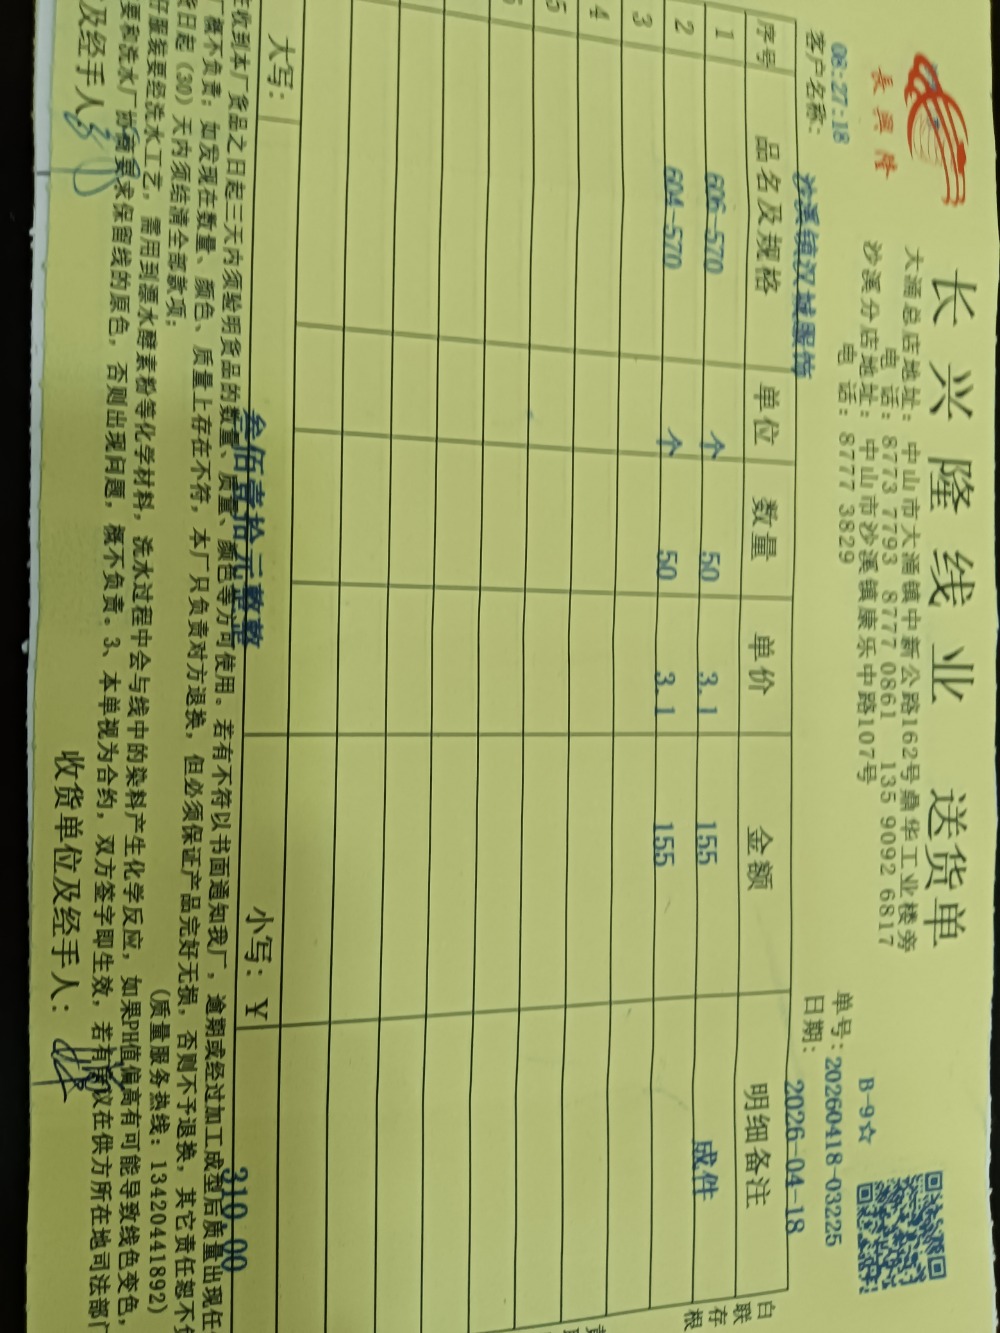 長興隆
长兴隆线业 送货单
大涌总店地址：中山市大涌镇中新公路162号鼎华工业楼旁
电 话：8773 7793 8777 0861 135 9092 6817
沙溪分店地址：中山市沙溪镇康乐中路107号
电 话：8777 3829
B-9☆
08:27:18
单号：20260418-03225
客户名称：沙溪镇汉城服饰
日期：2026-04-18
序号 品名及规格 单位 数量 单价 金额 明细备注
1 606-570 个 50 3.1 155 成件
2 604-570 个 50 3.1 155
3
4
5
白联存根
大写：叁佰壹拾元整
小写：￥310.00
收到本厂货品之日起三天内须验明货品的数量、质量、颜色等方可使用。若有不符以书面通知我厂，逾期或经过加工成型后质量出现任
概不负责；如发现在数量、颜色、质量上存在不符，本厂只负责对方退换，但必须保证产品完好无损，否则不予退换，其它责任恕不负
货日起（30）天内须结清全部款项；
(质量服务热线：13420441892)
服装要经洗水工艺，需用到漂水酵素粉等化学材料，洗水过程中会与线中的染料产生化学反应，如果PH值偏高有可能导致线色变色，
要和洗水厂协商要求保留线的原色，否则出现问题，概不负责。3、本单视为合约，双方签字即生效，若有争议在供方所在地司法部门
及经手人：
收货单位及经手人：